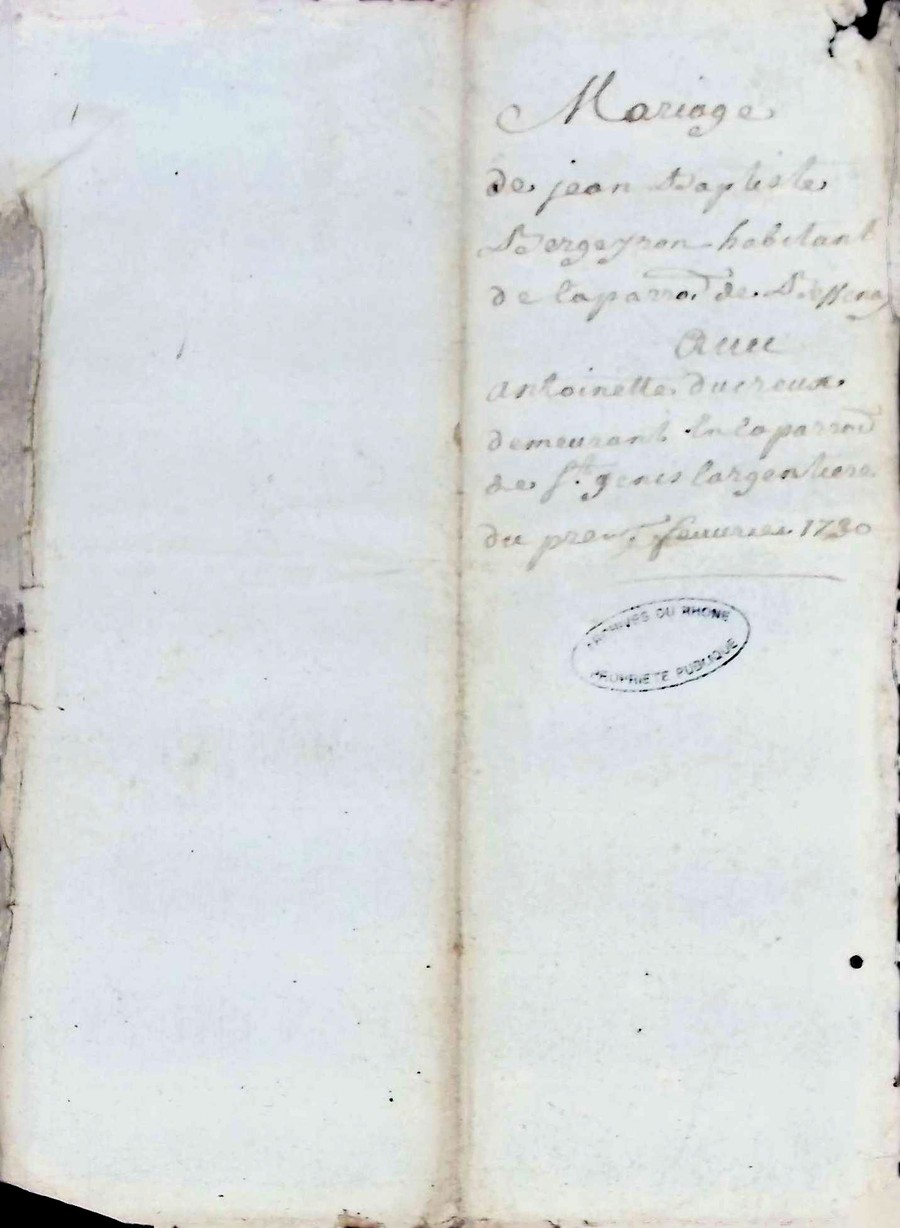 Mariage
de jean Baptiste
Bergeyron habitant
de la parro.^e de Bessenay
Auec
antoinette ducreux
demeurant En la parroi.^e
de S.^t genis largentiere
du prem.^r feuurier 1730
ARCHIVES DU RHONE
PROPRIETE PUBLIQUE